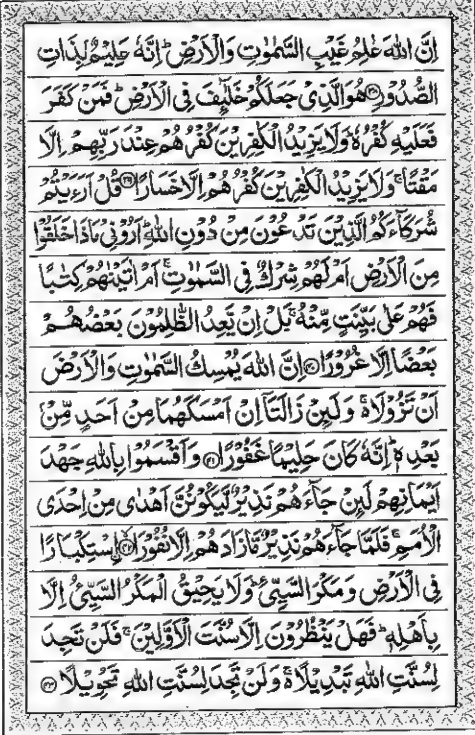 اِنَّ اللّٰهَ عٰلِمُ غَيْبِ السَّمٰوٰتِ وَالْاَرْضِ ؕ اِنَّهٗ عَلِيْمٌۢ بِذَاتِ
الصُّدُوْرِ ﴿۳۸﴾ هُوَ الَّذِیْ جَعَلَكُمْ خَلٰٓئِفَ فِی الْاَرْضِ ؕ فَمَنْ كَفَرَ
فَعَلَيْهِ كُفْرُهٗ ؕ وَلَا يَزِيْدُ الْكٰفِرِيْنَ كُفْرُهُمْ عِنْدَ رَبِّهِمْ اِلَّا
مَقْتًا ۚ وَلَا يَزِيْدُ الْكٰفِرِيْنَ كُفْرُهُمْ اِلَّا خَسَارًا ﴿۳۹﴾ قُلْ اَرَءَيْتُمْ
شُرَكَآءَكُمُ الَّذِيْنَ تَدْعُوْنَ مِنْ دُوْنِ اللّٰهِ ؕ اَرُوْنِیْ مَاذَا خَلَقُوْا
مِنَ الْاَرْضِ اَمْ لَهُمْ شِرْكٌ فِی السَّمٰوٰتِ ۚ اَمْ اٰتَيْنٰهُمْ كِتٰبًا
فَهُمْ عَلٰی بَيِّنَتٍ مِّنْهُ ۚ بَلْ اِنْ يَّعِدُ الظّٰلِمُوْنَ بَعْضُهُمْ
بَعْضًا اِلَّا غُرُوْرًا ﴿۴۰﴾ اِنَّ اللّٰهَ يُمْسِكُ السَّمٰوٰتِ وَالْاَرْضَ
اَنْ تَزُوْلَا ۚ۬ وَلَئِنْ زَالَتَاۤ اِنْ اَمْسَكَهُمَا مِنْ اَحَدٍ مِّنْۢ
بَعْدِهٖ ؕ اِنَّهٗ كَانَ حَلِيْمًا غَفُوْرًا ﴿۴۱﴾ وَاَقْسَمُوْا بِاللّٰهِ جَهْدَ
اَيْمَانِهِمْ لَئِنْ جَآءَهُمْ نَذِيْرٌ لَّيَكُوْنُنَّ اَهْدٰی مِنْ اِحْدَی
الْاُمَمِ ۚ فَلَمَّا جَآءَهُمْ نَذِيْرٌ مَّا زَادَهُمْ اِلَّا نُفُوْرًا ﴿۴۲﴾ اِسْتِكْبَارًا
فِی الْاَرْضِ وَمَكْرَ السَّیِّئِ ؕ وَلَا يَحِيْقُ الْمَكْرُ السَّیِّئُ اِلَّا
بِاَهْلِهٖ ؕ فَهَلْ يَنْظُرُوْنَ اِلَّا سُنَّتَ الْاَوَّلِيْنَ ۚ فَلَنْ تَجِدَ
لِسُنَّتِ اللّٰهِ تَبْدِيْلًا ۚ۬ وَلَنْ تَجِدَ لِسُنَّتِ اللّٰهِ تَحْوِيْلًا ﴿۴۳﴾